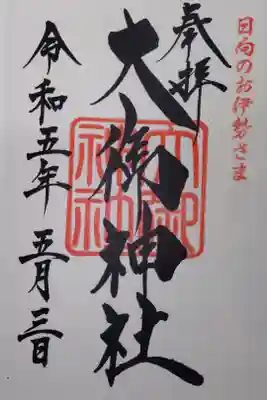 日向のお伊勢さま
奉拝
大御神社
大御神社
令和五年 五月 三日